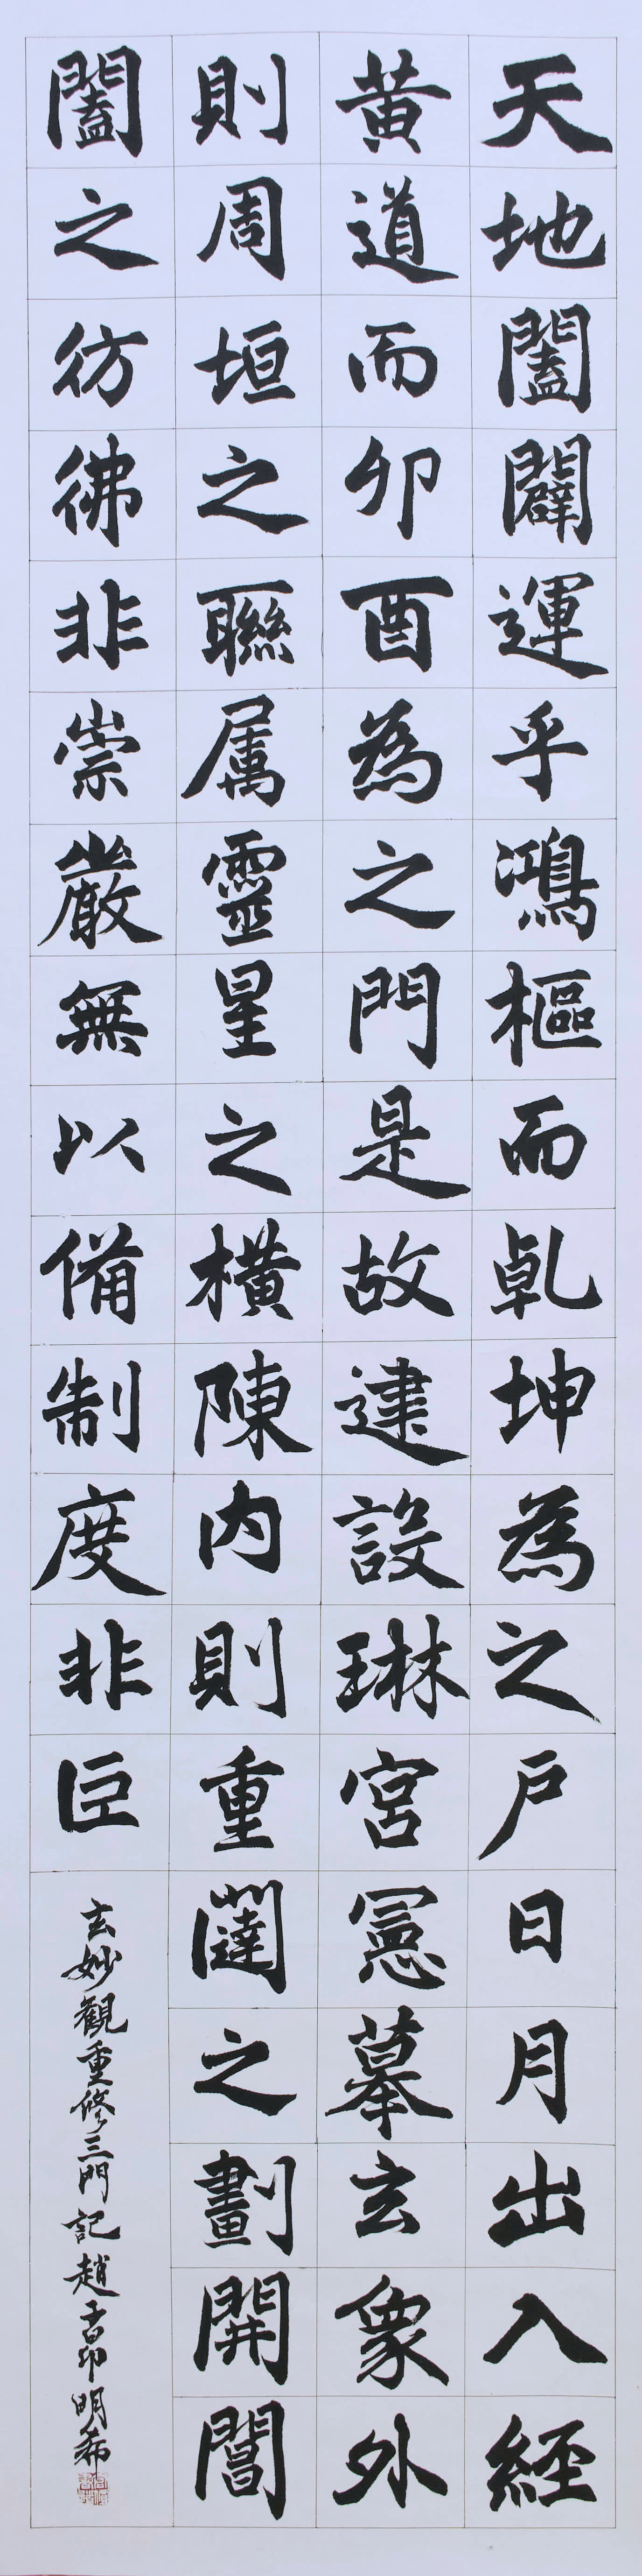 天地闔闢運乎鴻樞而乹坤為之戶日月出入経
黄道而卯酉為之門是故建設琳宮憲摹玄象外
則周垣之聯属靈星之横陳内則重闥之劃開闔
闔之彷彿非崇嚴無以備制度非巨
玄妙觀重修三門記趙子昂明希